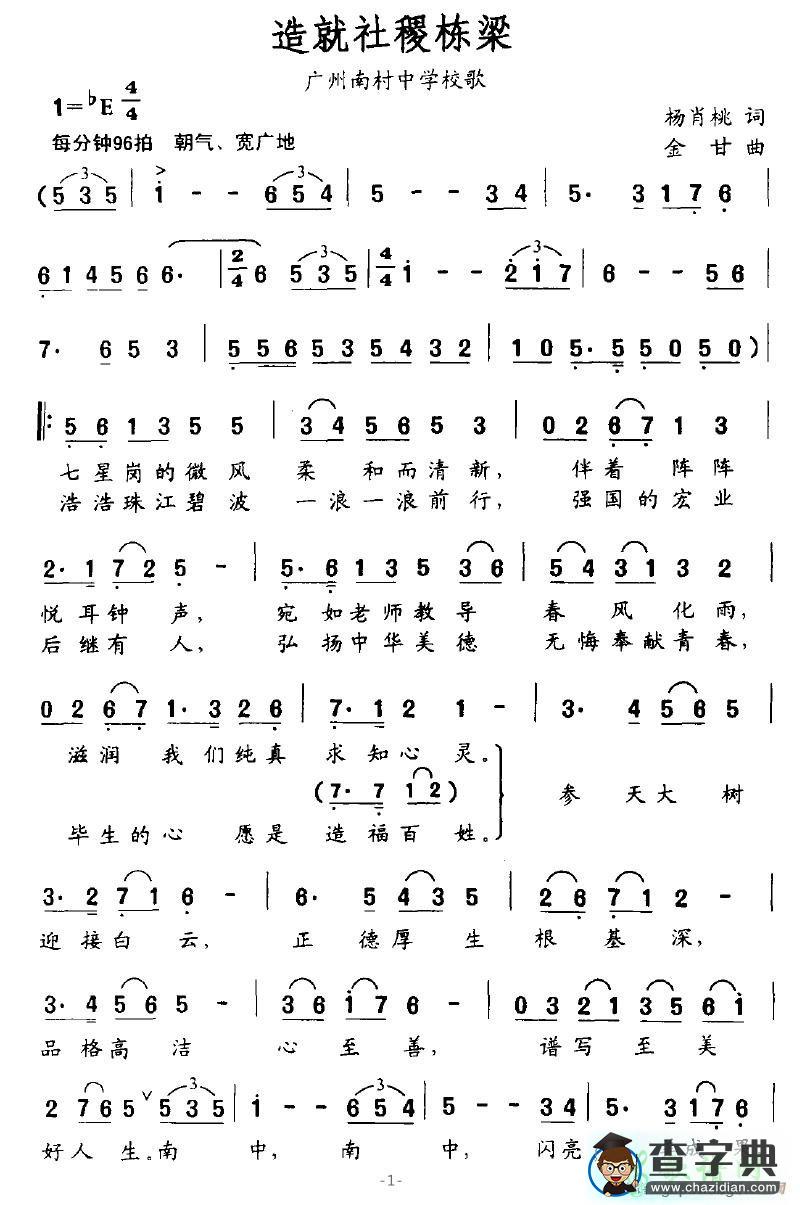 造就社稷栋梁
广州南村中学校歌
1=♭E 4/4
杨肖桃 词
每分钟96拍 朝气、宽广地
金 甘 曲
(5 3 5 | 1 - - 6 5 4 | 5 - - 3 4 | 5· 3 1 7 6 |
6 1 4 5 6 6· | 2/4 6 5 3 5 | 4/4 1 - - 2 1 7 | 6 - - 5 6 |
7· 6 5 3 | 5 5 6 5 3 5 4 3 2 | 1 0 5· 5 5 0 5 0 )|
|: 5 6 1 3 5 5 | 3 4 5 6 5 3 | 0 2 6 7 1 3 |
七星岗的微风 柔 和而清新, 伴着 阵阵
浩浩珠江碧波 一浪一浪前行, 强国的宏业
2· 1 7 2 5 - | 5· 6 1 3 5 3 6 | 5 4 3 1 3 2 |
悦耳钟 声, 宛如老师教导 春 风 化雨,
后继有 人, 弘扬中华美德 无悔奉献青春,
0 2 6 7 1· 3 2 6 | 7· 1 2 1 - | 3· 4 5 6 5 |
滋润 我们纯真 求知心 灵。
(7· 7 1 2) 参 天大 树
毕生的心 愿是 造福百 姓。
3· 2 7 1 6 - | 6· 5 4 3 5 | 2 6 7 1 2 - |
迎接白 云, 正 德厚 生 根 基 深,
3· 4 5 6 5 - | 3 6 1 7 6 - | 0 3 2 1 3 5 6 1 |
品格高 洁 心 至 善, 谱写 至 美
2 7 6 5 ∨ 5 3 5 | 1 - - 6 5 4 | 5 - - 3 4 | 5· 3 1 7 6 |
好人 生。南 中, 南 中, 闪亮
-1-
查字典
www.chazidian.com